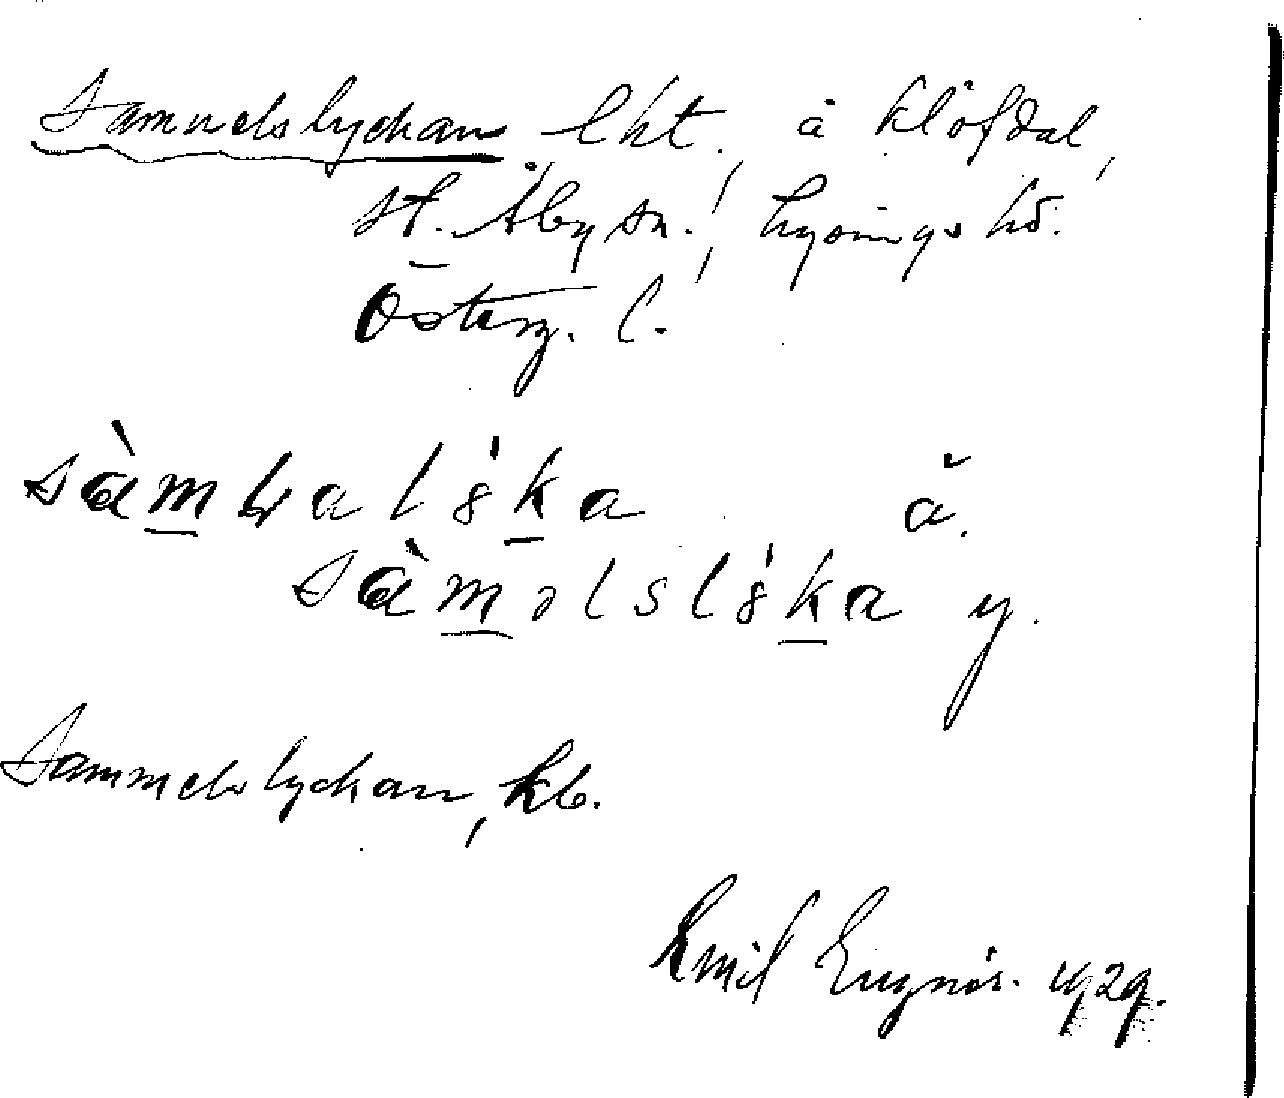 Samuelslyckan, lht. å Klöfdal,
St. Åby sn., Lysings hd.
Österg. l.
sàmbalṡka ă.
sàmɔlslṡka y.
Sammelslyckan, kb.
Emil 1929.